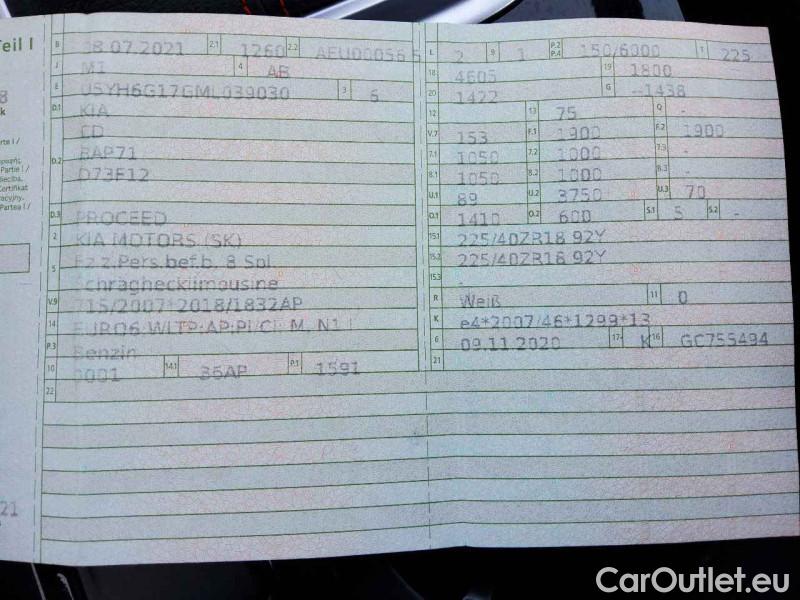 Teil I
B 08.07.2021 2.1 1260 2.2 AEU00056 5
J M1 4 AB
E U5YH6G17GML039030 3 6
D.1 KIA
CD
D.2 BAP71
D73F12
D.3 PROCEED
2 KIA MOTORS (SK)
5 Fz.z.Pers.bef.b. 8 Spl.
Schräghecklimousine
V.9 715/2007*2018/1832AP
14 EURO6 WLTP;AP;PI/CI; M, N1 I
P.3 Benzin
10 0001 14.1 36AP P.1 1591
22
L 2 9 1 P.2 P.4 150/6000 T 225
18 4605 19 1800
20 1422 G --1438
12 - 13 75 Q -
V.7 153 F.1 1900 F.2 1900
7.1 1050 7.2 1000 7.3 -
8.1 1050 8.2 1000 8.3 -
U.1 89 U.2 3750 U.3 70
O.1 1410 O.2 600 S.1 5 S.2 -
15.1 225/40ZR18 92Y
15.2 225/40ZR18 92Y
15.3 -
R Weiß 11 0
K e4*2007/46*1299*13
6 09.11.2020 17 K 16 GC755494
21
8
k
rte I /
Partie I /
Certifikat
Partea I /
21
CarOutlet.eu